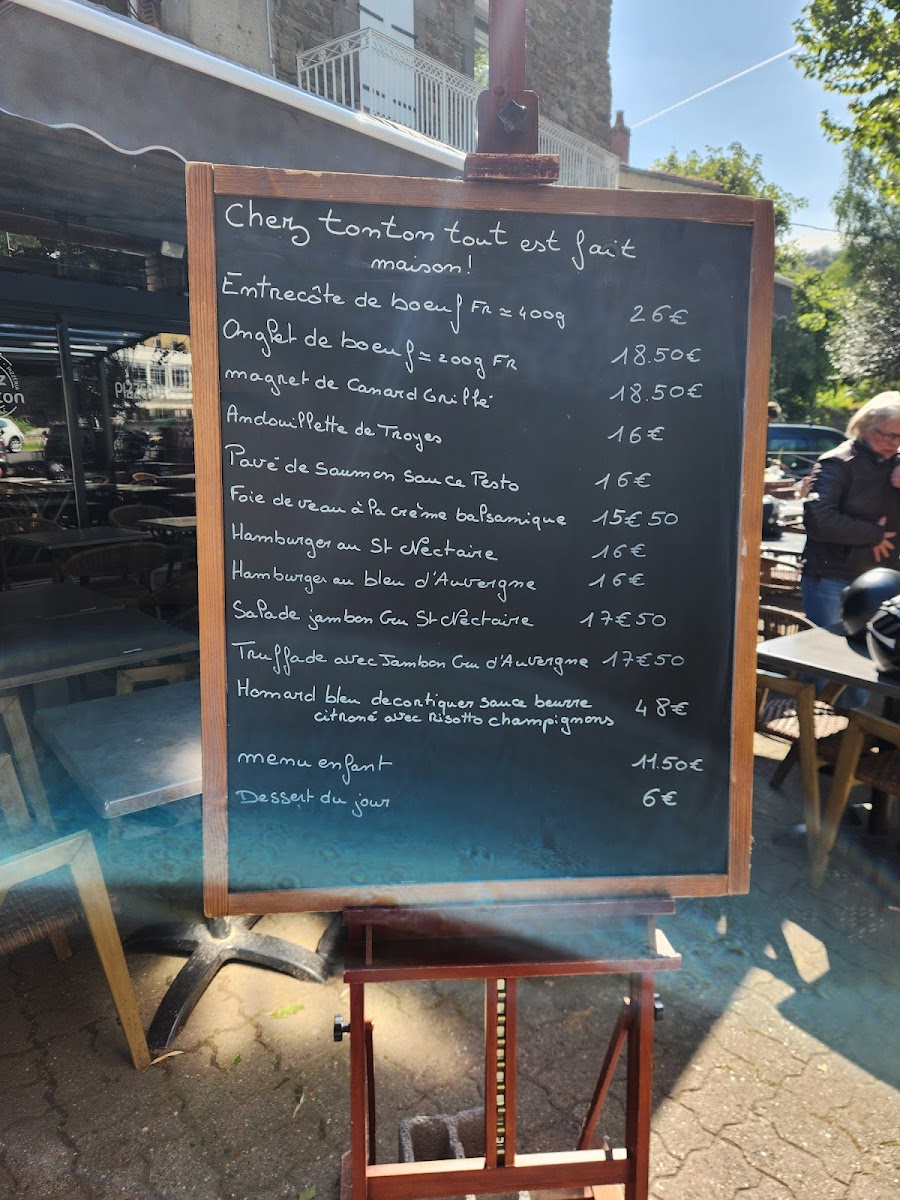 Chez tonton tout est fait
maison!
Entrecôte de boeuf FR ≃ 400g 26€
Onglet de boeuf ≃ 200g FR 18.50€
magret de Canard Grillé 18.50€
Andouillette de Troyes 16€
Pavé de Saumon Sauce Pesto 16€
Foie de veau à la crème balsamique 15€50
Hamburger au St Nectaire 16€
Hamburger au bleu d'Auvergne 16€
Salade jambon Cru St Nectaire 17€50
Truffade avec Jambon Cru d'Auvergne 17€50
Homard bleu decortiquer sauce beurre
citroné avec Risotto champignons 48€
menu enfant 11.50€
Dessert du jour 6€